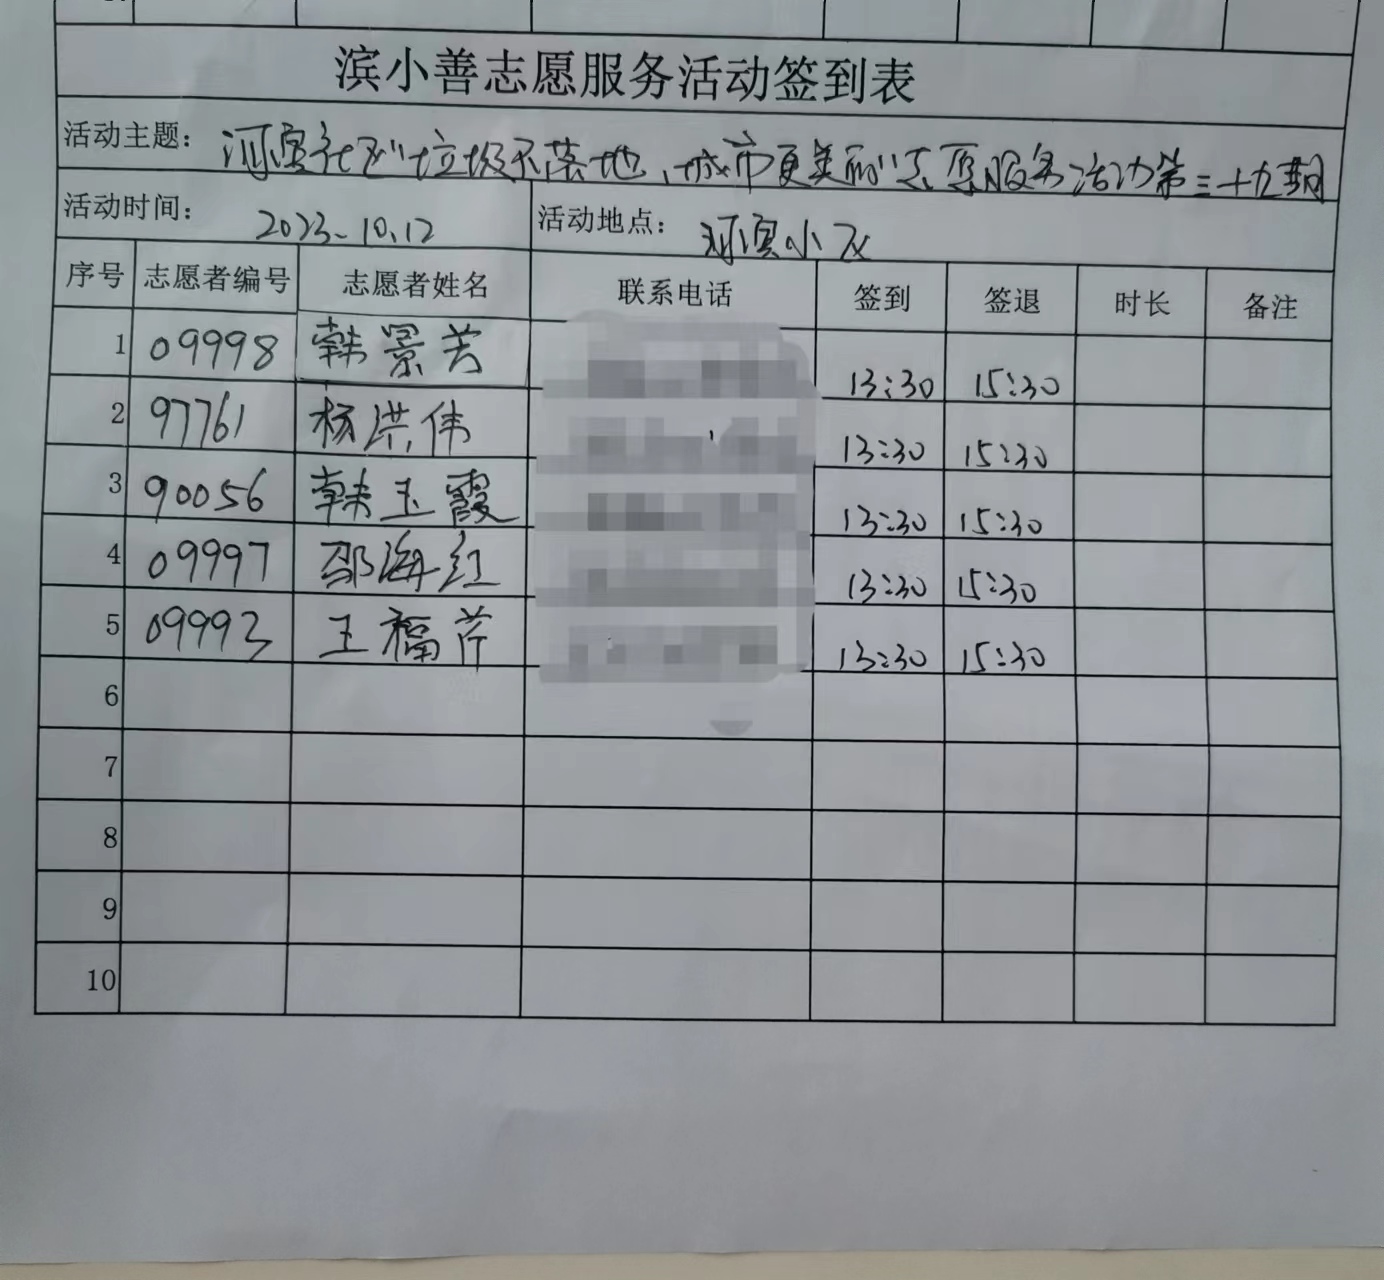 滨小善志愿服务活动签到表
活动主题：河宾社区"垃圾不落地、城市更美丽"志愿服务活动第三十九期
活动时间：2023.10.12 活动地点：河宾小区
序号 志愿者编号 志愿者姓名 联系电话 签到 签退 时长 备注
1 09998 韩景芳 13:30 15:30
2 97761 杨洪伟 13:30 15:30
3 90056 韩玉霞 13:30 15:30
4 09997 邵海红 13:30 15:30
5 09993 王福芹 13:30 15:30
6
7
8
9
10